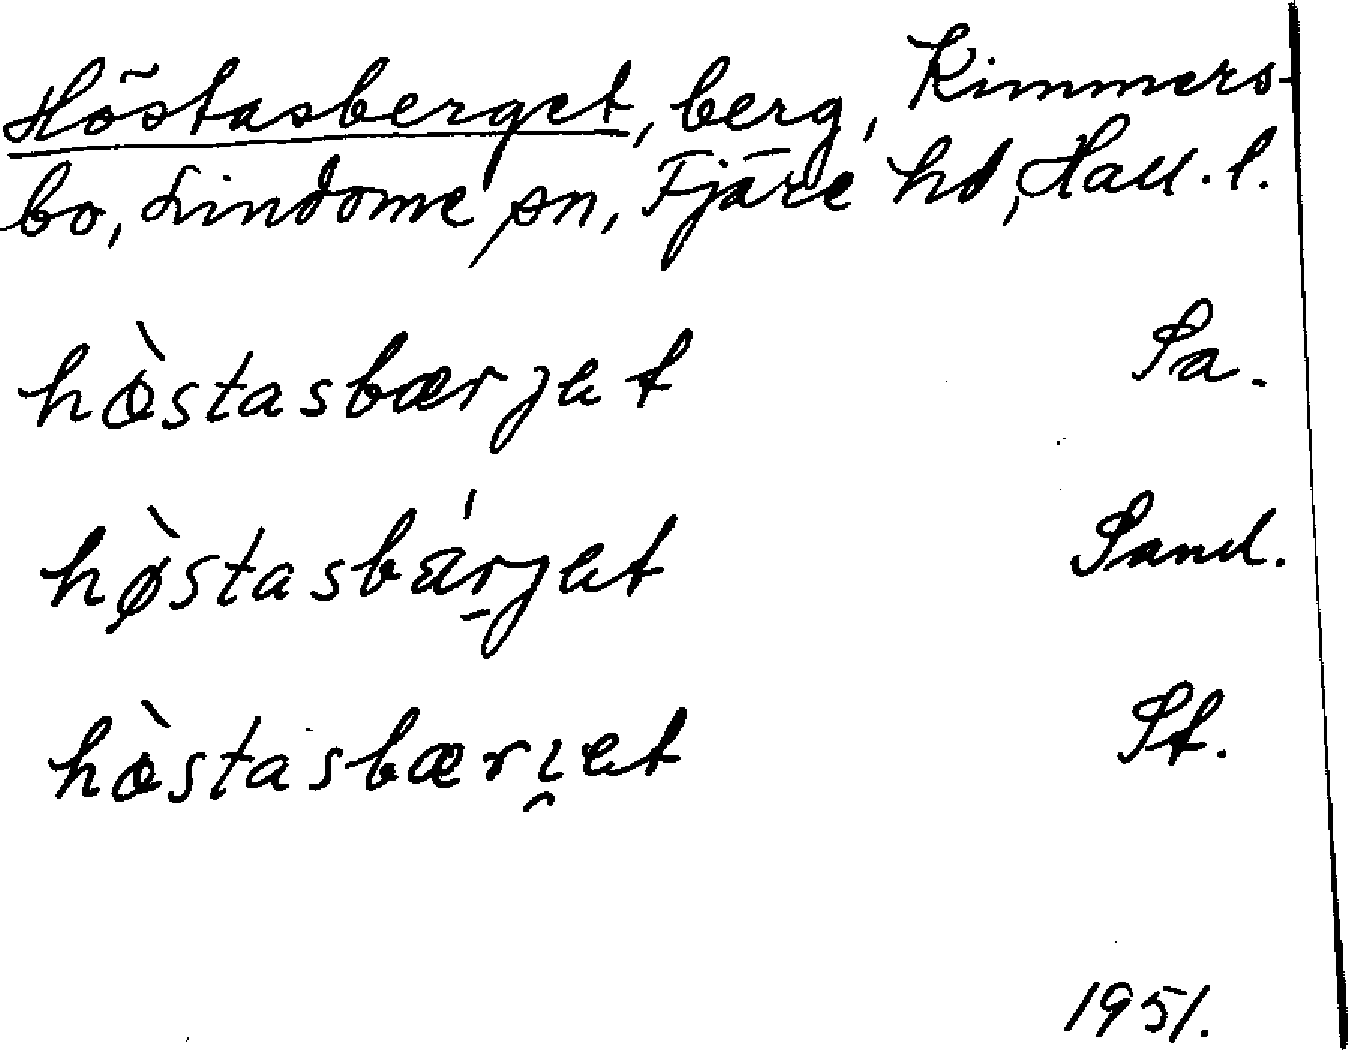 Höstasberget, berg, Kimmers-
bo, Lindome sn, Fjäre hd, Hall. l.
hòstasbærjet Sa.
hø̀stasbárjet Sand.
hòstasbæri̯et St.
1951.